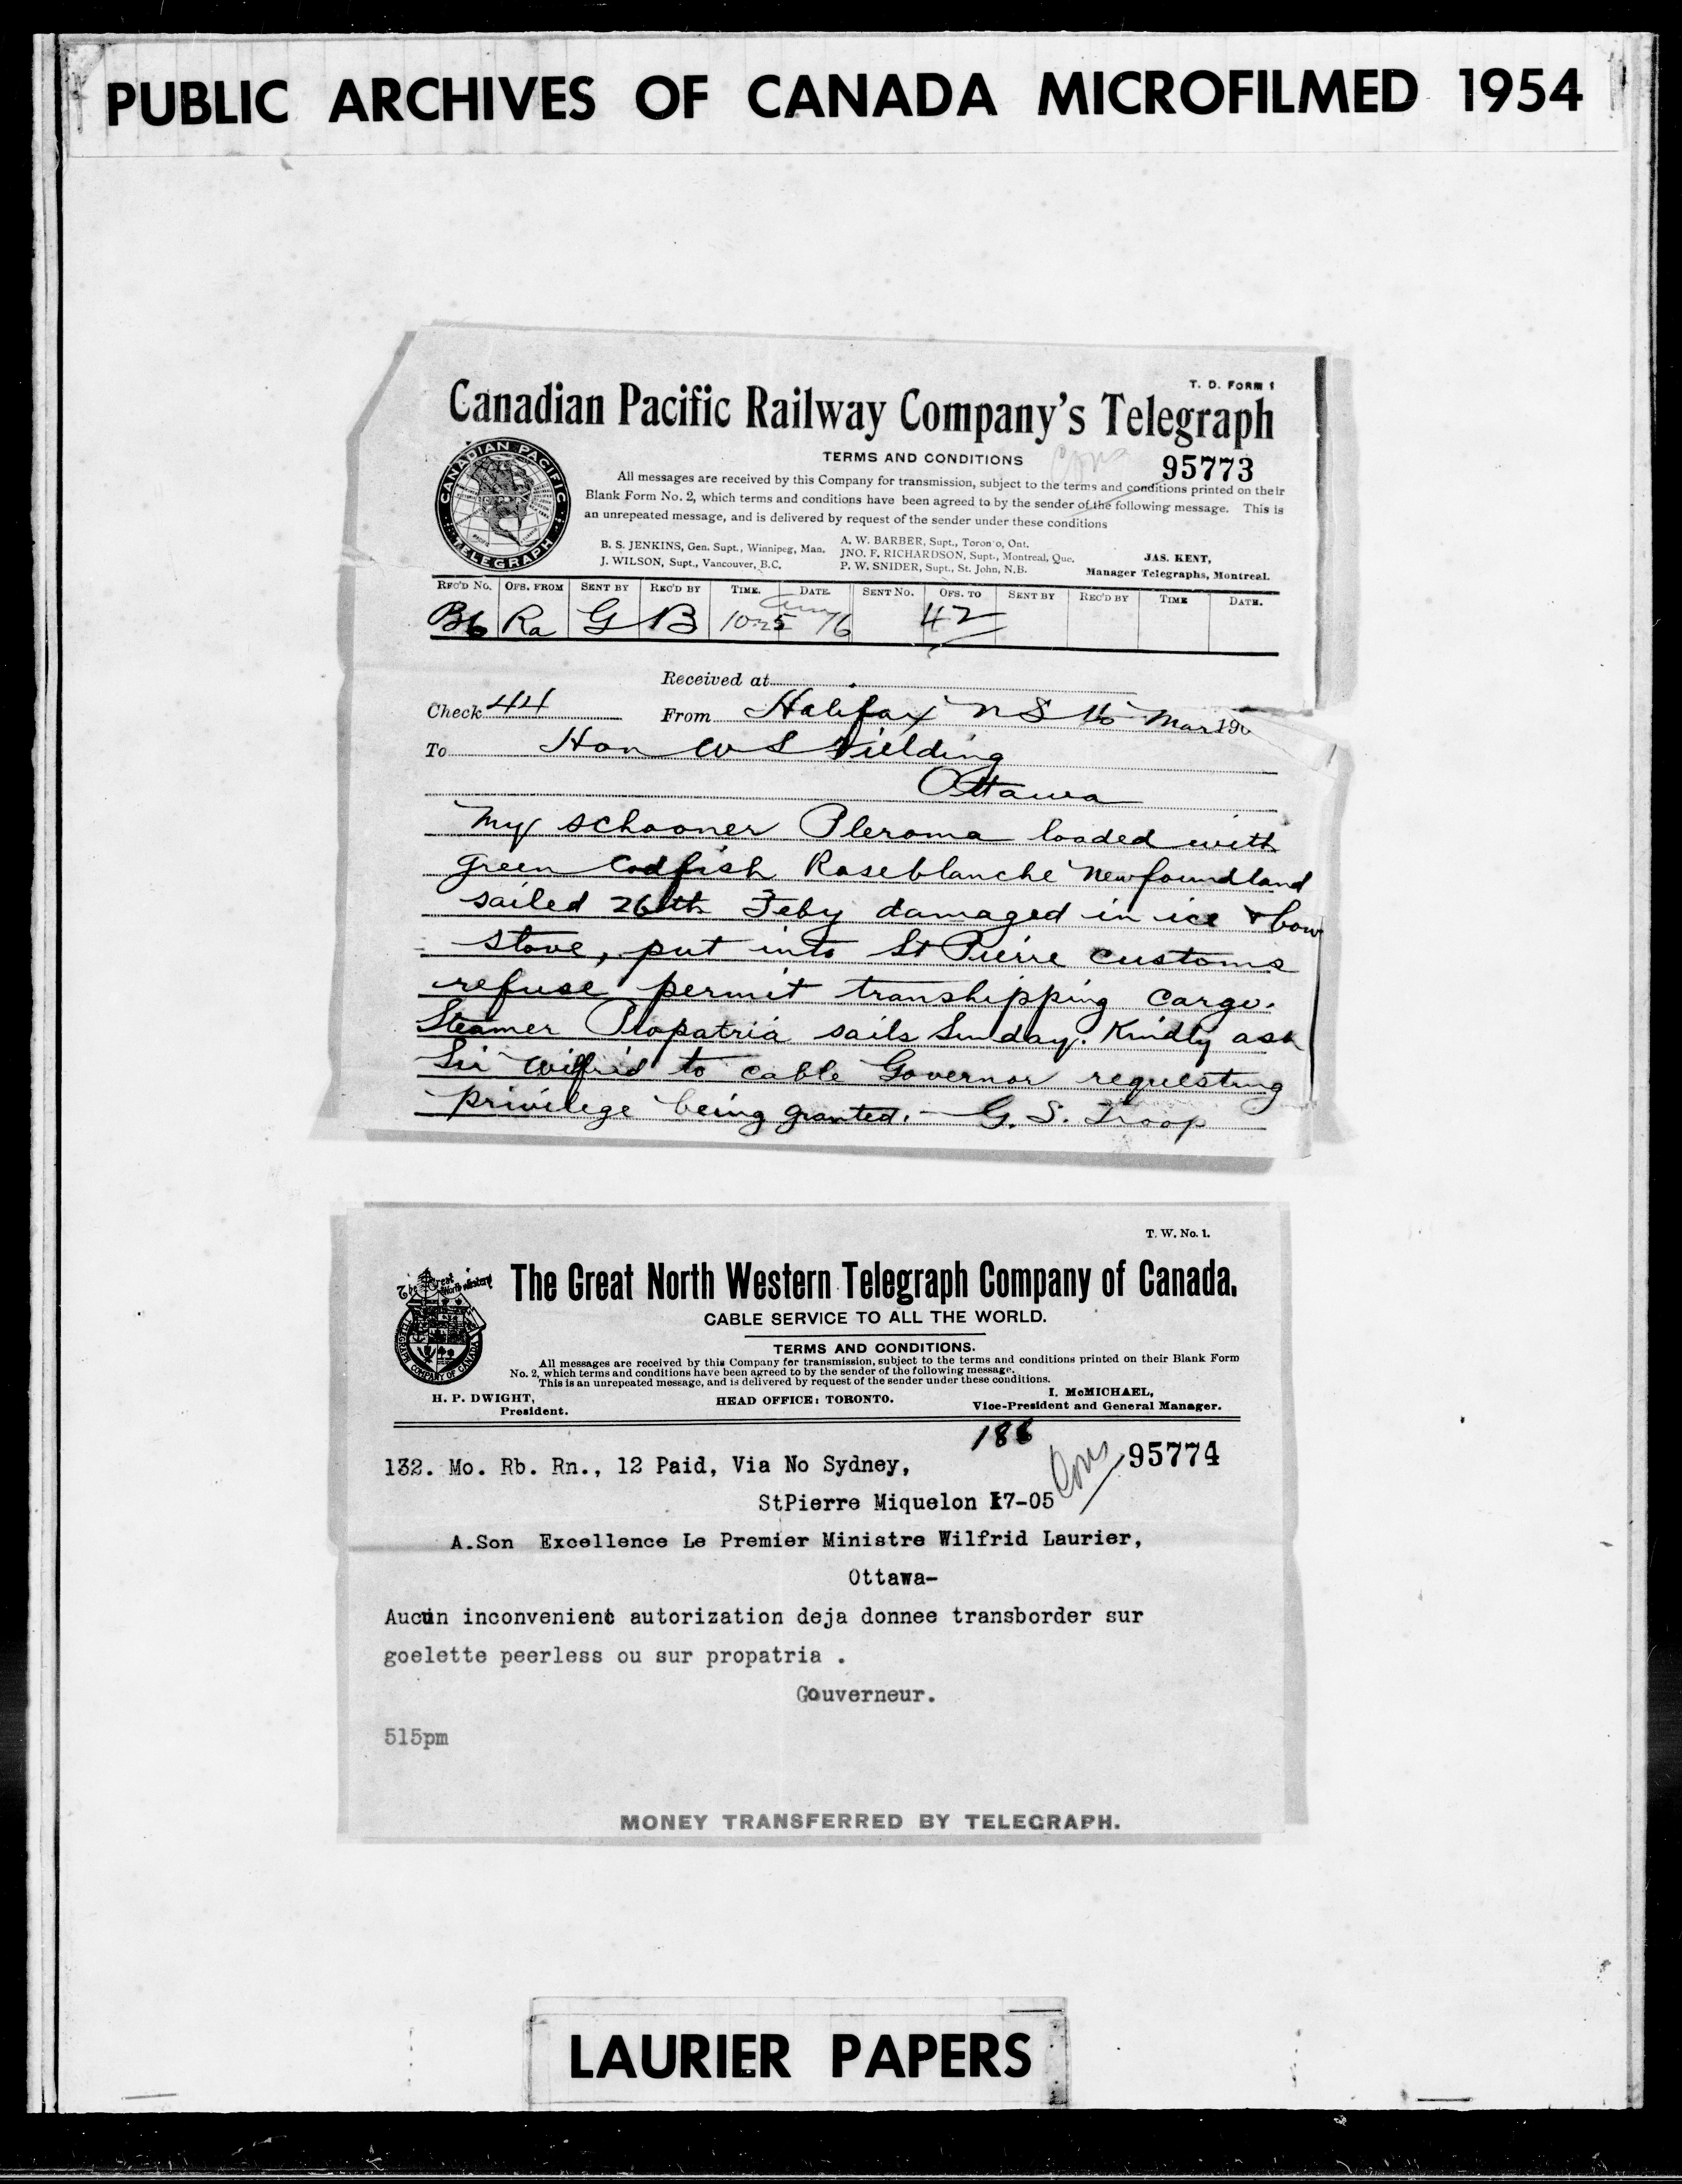 PUBLIC ARCHIVES OF CANADA MICROFILMED 1954
T. D. FORM 1
Canadian Pacific Railway Company's Telegraph
TERMS AND CONDITIONS
95773
All messages are received by this Company for transmission, subject to the terms and conditions printed on their
Blank Form No. 2, which terms and conditions have been agreed to by the sender of the following message. This is
an unrepeated message, and is delivered by request of the sender under these conditions
CANADIAN PACIFIC TELEGRAPH
B. S. JENKINS, Gen. Supt., Winnipeg, Man.
J. WILSON, Supt., Vancouver, B.C.
A. W. BARBER, Supt., Toronto, Ont.
JNO. F. RICHARDSON, Supt., Montreal, Que.
P. W. SNIDER, Supt., St. John, N.B.
JAS. KENT,
Manager Telegraphs, Montreal.
REC'D NO. OFS. FROM SENT BY REC'D BY TIME. DATE. SENT NO. OFS. TO SENT BY REC'D BY TIME DATE.
B6 Ra G B 1025 16 42
Received at
Check 44 From Halifax NS 16 Mar 190
To Hon W S Fielding
Ottawa
My schooner Pleroma loaded with
green Codfish Roseblanche Newfoundland
sailed 26th Feby damaged in ice & bow
stove, put into St Pierre customs
refuse permit transhipping cargo.
Steamer Propatria sails Sunday. Kindly ask
Sir Wilfrid to cable Governor requesting
privilege being granted. - G. S. Troop
T. W. No. 1.
The Great North Western Telegraph Company of Canada.
CABLE SERVICE TO ALL THE WORLD.
TERMS AND CONDITIONS.
All messages are received by this Company for transmission, subject to the terms and conditions printed on their Blank Form
No. 2, which terms and conditions have been agreed to by the sender of the following message.
This is an unrepeated message, and is delivered by request of the sender under these conditions.
H. P. DWIGHT,
President.
HEAD OFFICE: TORONTO.
I. McMICHAEL,
Vice-President and General Manager.
186
95774
132. Mo. Rb. Rn., 12 Paid, Via No Sydney,
StPierre Miquelon 17-05
A.Son Excellence Le Premier Ministre Wilfrid Laurier,
Ottawa-
Aucun inconvenient autorization deja donnee transborder sur
goelette peerless ou sur propatria .
Gouverneur.
515pm
MONEY TRANSFERRED BY TELEGRAPH.
LAURIER PAPERS